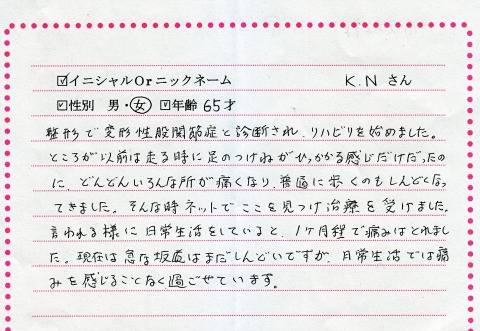 ☑イニシャルOrニックネーム K.N さん
☑性別 男・女 ☑年齢 65才
整形で変形性股関節症と診断され、リハビリを始めました。
ところが以前は走る時に足のつけねがひっかかる感じだけだったの
に、どんどんいろんな所が痛くなり、普通に歩くのもしんどくなっ
てきました。そんな時ネットでここを見つけ治療を受けました。
言われる様に日常生活をしていると、1ヶ月程で痛みはとれまし
た。現在は急な坂道はまだしんどいですが、日常生活では痛
みを感じることなく過ごせています。